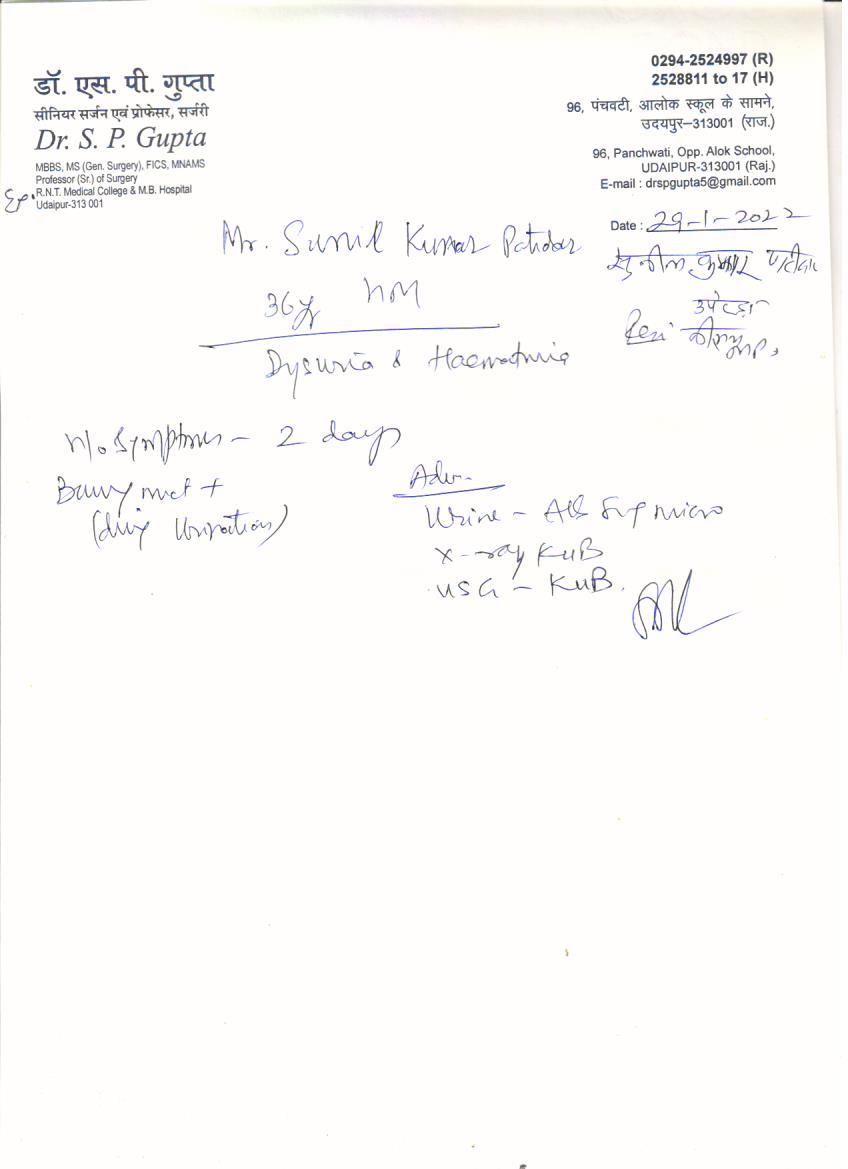 डॉ. एस. पी. गुप्ता
सीनियर सर्जन एवं प्रोफेसर, सर्जरी
Dr. S. P. Gupta
MBBS, MS (Gen. Surgery), FICS, MNAMS
Professor (Sr.) of Surgery
Ex. R.N.T. Medical College & M.B. Hospital
Udaipur-313 001
0294-2524997 (R)
2528811 to 17 (H)
96, पंचवटी, आलोक स्कूल के सामने,
उदयपुर–313001 (राज.)
96, Panchwati, Opp. Alok School,
UDAIPUR-313001 (Raj.)
E-mail : drspgupta5@gmail.com
Date : 29-1-2022
Mr. Sunil Kumar Patidar
सुनील कुमार पाटीदार
36y HM
Resi
Dysuria & Haematuria
H/o Symptoms - 2 days
Burning mict +
(during Urination)
Adv.
Urine - Alb Sug micro
X-ray KUB
USG - KUB.